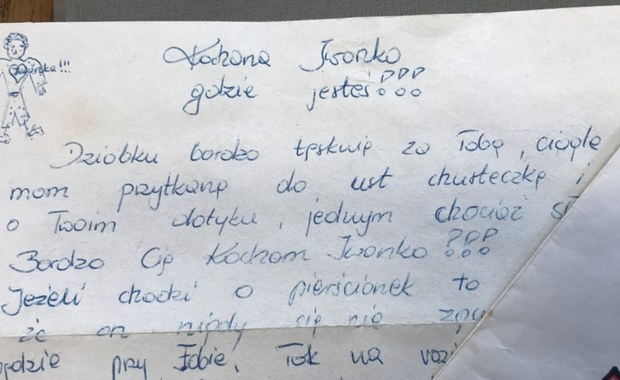 Kochana Iwonko
gdzie jesteś???
Dziobku bardzo tęsknię za Tobą, ciągle
mam przytkaną do ust chusteczkę i
o Twoim dotyku, jednym chociaż
Bardzo Cię Kocham Iwonko???
Jeżeli chodzi o pierścionek to
że on nigdy się nie
przy Tobie. Tak na